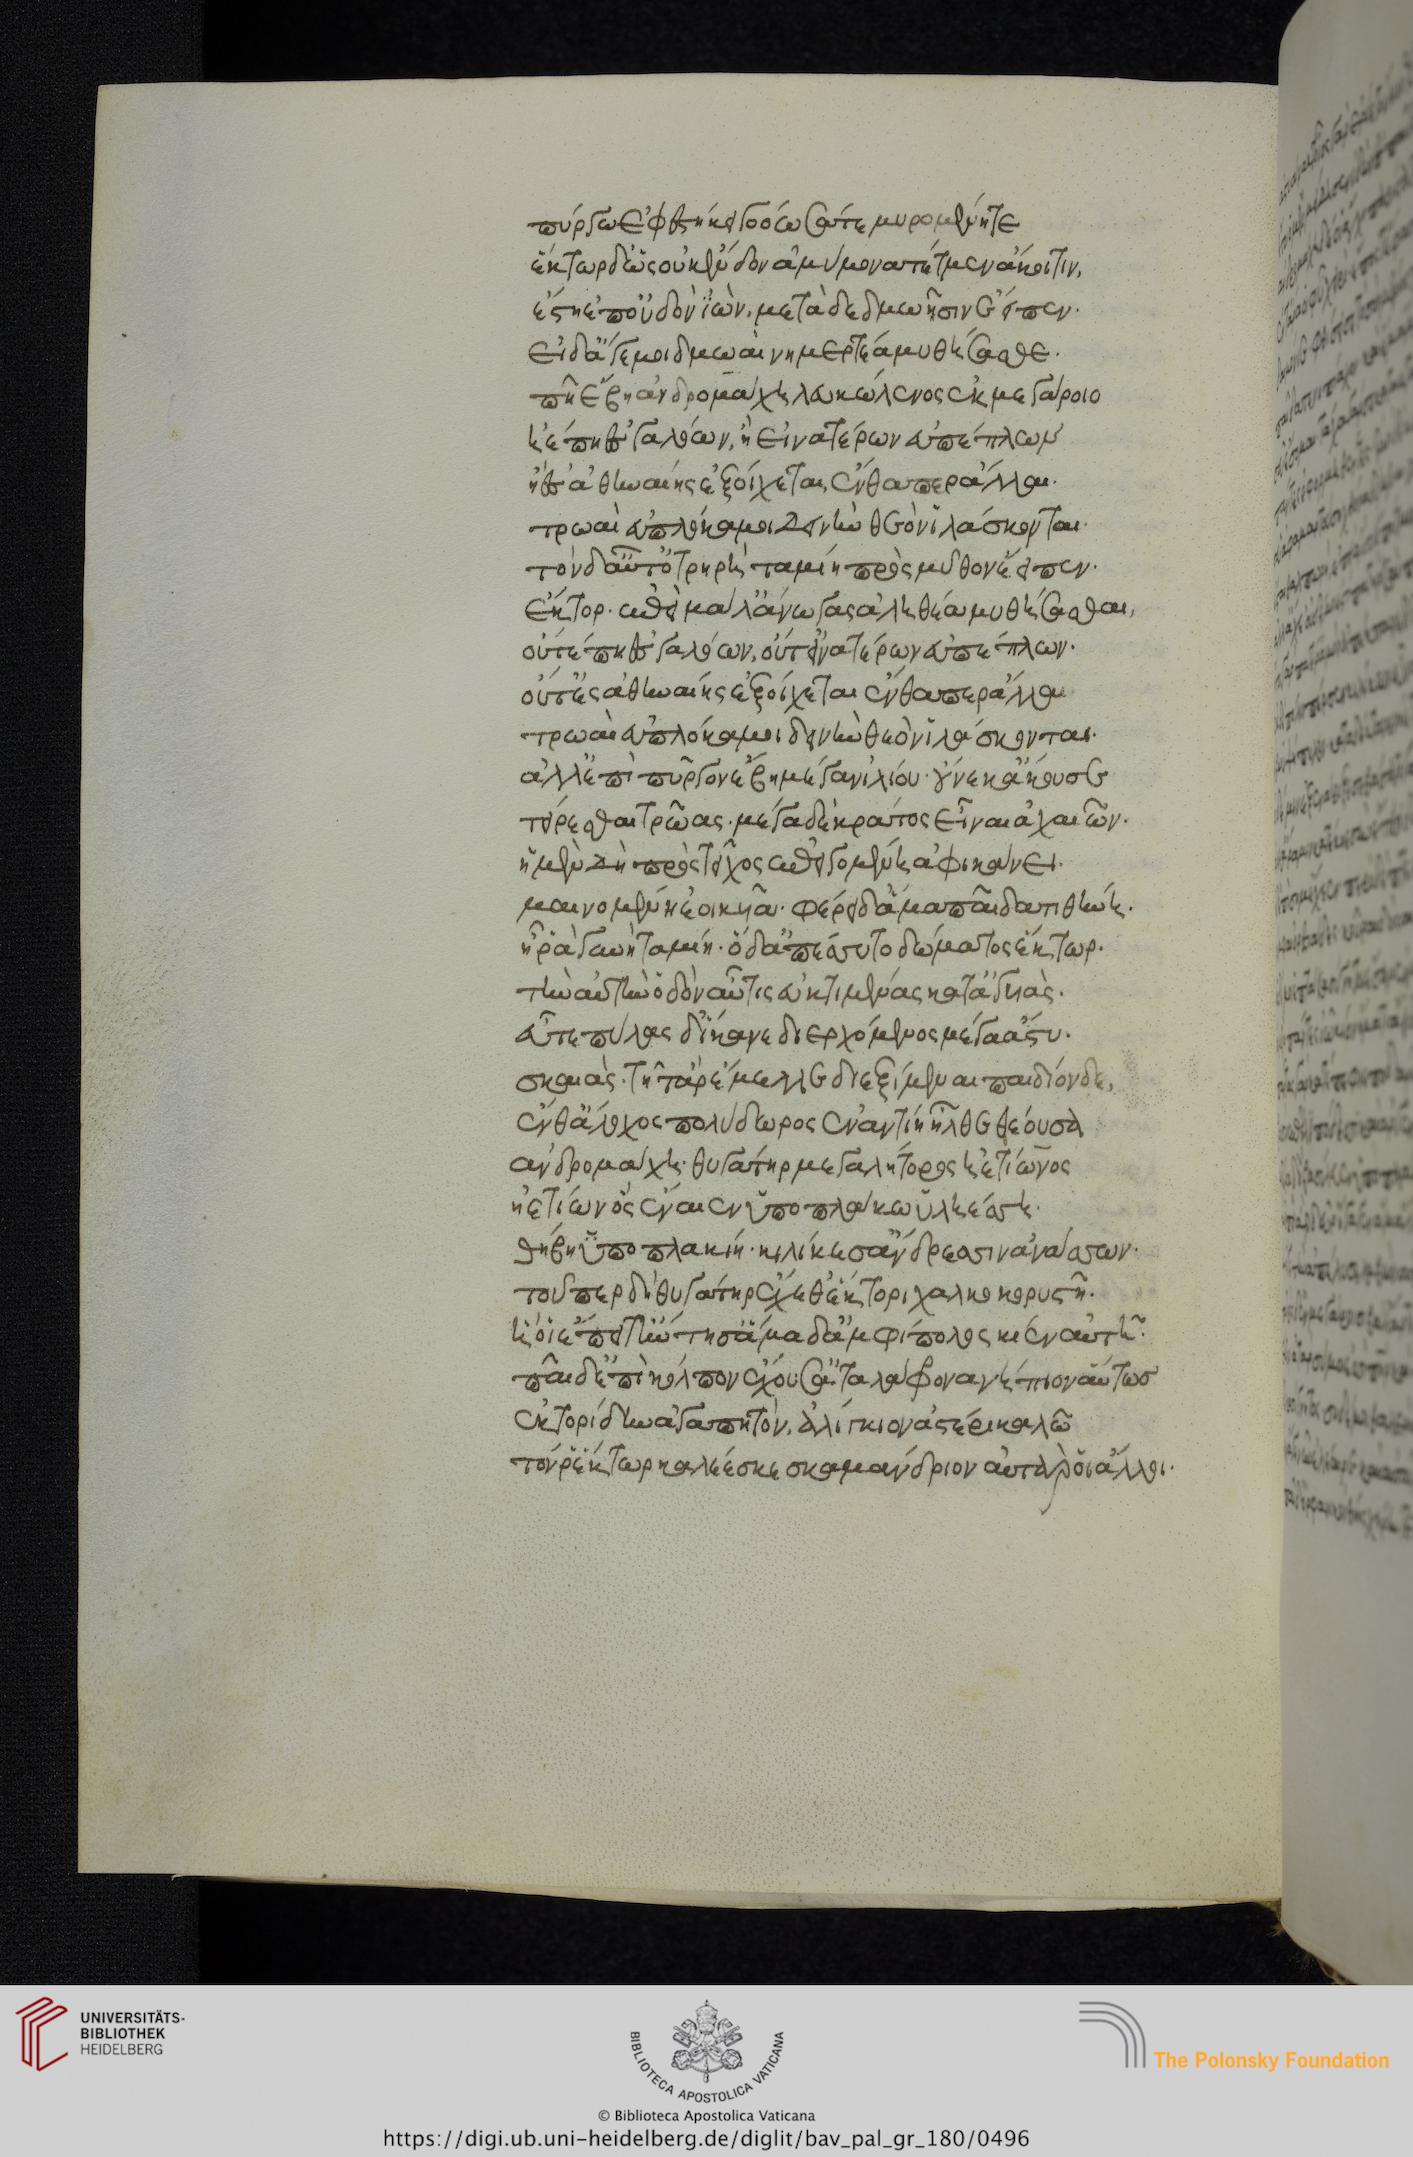 πύργω ἐφεστήκει γοόωσά τε μυρομένη τε
ἕκτωρ δ' ὡς οὐκ ἔνδον ἀμύμονα τέτμεν ἄκοιτιν,
ἔστη ἐπ' οὐδὸν ἰὼν, μετὰ δὲ δμωῆσιν ἔειπεν·
εἰ δ' ἄγε μοι δμωαὶ νημερτέα μυθήσασθε·
πῆ ἔβη ἀνδρομάχη λευκώλενος ἐκ μεγάροιο
ἠέ πη ἐς γαλόων, ἢ εἰνατέρων εὐπέπλων
ἢ ἐς ἀθηναίης ἐξοίχεται, ἔνθα περ ἄλλαι·
τρωαὶ εὐπλόκαμοι δεινὴν θεὸν ἱλάσκονται·
τὸν δ' αὖτ' ὀτρηρὴ ταμίη πρὸς μῦθον ἔειπεν·
ἕκτορ· ἐπεὶ μάλ' ἄνωγας ἀληθέα μυθήσασθαι,
οὔτέ πη ἐς γαλόων, οὔτ' εἰνατέρων εὐπέπλων·
οὔτ' ἐς ἀθηναίης ἐξοίχεται ἔνθα περ ἄλλαι
τρωαὶ εὐπλόκαμοι δεινὴν θεὸν ἱλάσκονται·
ἀλλ' ἐπὶ πῦργον ἔβη μέγαν ἰλίου· οὕνεκ' ἄκουσε
τείρεσθαι τρῶας· μέγα δὲ κράτος εἶναι ἀχαιῶν·
ἡ μὲν δὴ πρὸς τεῖχος ἐπειγομένη ἀφικάνει·
μαινομένη ἐοικυῖα· φέρει δ' ἅμα παῖδα τιθήνη·
ἦ ῥὰ γυνὴ ταμίη· ὁ δ' ἀπέσσυτο δώματος ἕκτωρ·
τὴν αὐτὴν ὁδὸν αὖτις ἐυκτιμένας κατ' ἀγυιάς·
εὖτε πύλας ἵκανε διερχόμενος μέγα ἄστυ·
σκαιάς· τῆ γὰρ ἔμελλε διεξίμεναι πεδίον δὲ,
ἔνθ' ἄλοχος πολύδωρος ἐναντίη ἦλθε θέουσα
ἀνδρομάχη· θυγάτηρ μεγαλήτορος ἠετίωνος
ἠετίων ὃς ἔναιεν ὑπὸ πλάκω ὑληέσση·
θήβη ὑποπλακίη· κιλίκεσσ' ἄνδρεσσιν ἀνάσσων·
τοῦπερ δὴ θυγάτηρ ἔχεθ' ἕκτορι χαλκοκορυστῆ·
ἥ οἱ ἔπειτ' ἤντησ' ἅμα δ' ἀμφίπολος κίεν αὐτῆ·
παῖδ' ἐπὶ κόλπον ἔχουσ' ἀταλάφρονα νήπιον αὔτως
ἑκτορίδην ἀγαπητόν, ἀλίγκιον ἀστέρι καλῶ
τόν ῥ' ἕκτωρ καλέεσκε σκαμάνδριον αὐτὰρ οἱ ἄλλοι·
UNIVERSITÄTS-
BIBLIOTHEK
HEIDELBERG
BIBLIOTECA APOSTOLICA VATICANA
The Polonsky Foundation
© Biblioteca Apostolica Vaticana
https://digi.ub.uni-heidelberg.de/diglit/bav_pal_gr_180/0496